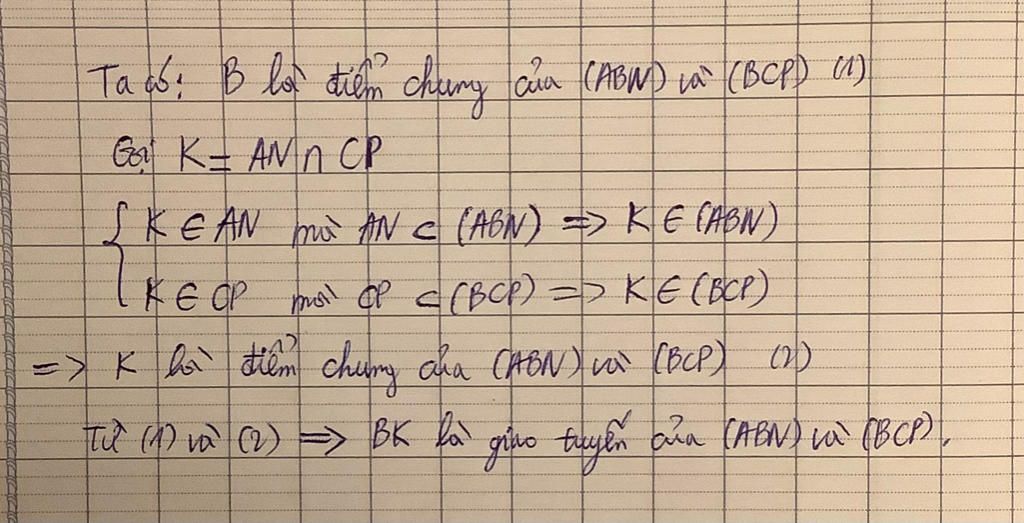 Ta có: B là điểm chung của (ABN) và (BCP) (1)
Gọi K = AN ∩ CP
{ K ∈ AN mà AN ⊂ (ABN) => K ∈ (ABN)
K ∈ CP mà CP ⊂ (BCP) => K ∈ (BCP)
=> K là điểm chung của (ABN) và (BCP) (2)
Từ (1) và (2) => BK là giao tuyến của (ABN) và (BCP).